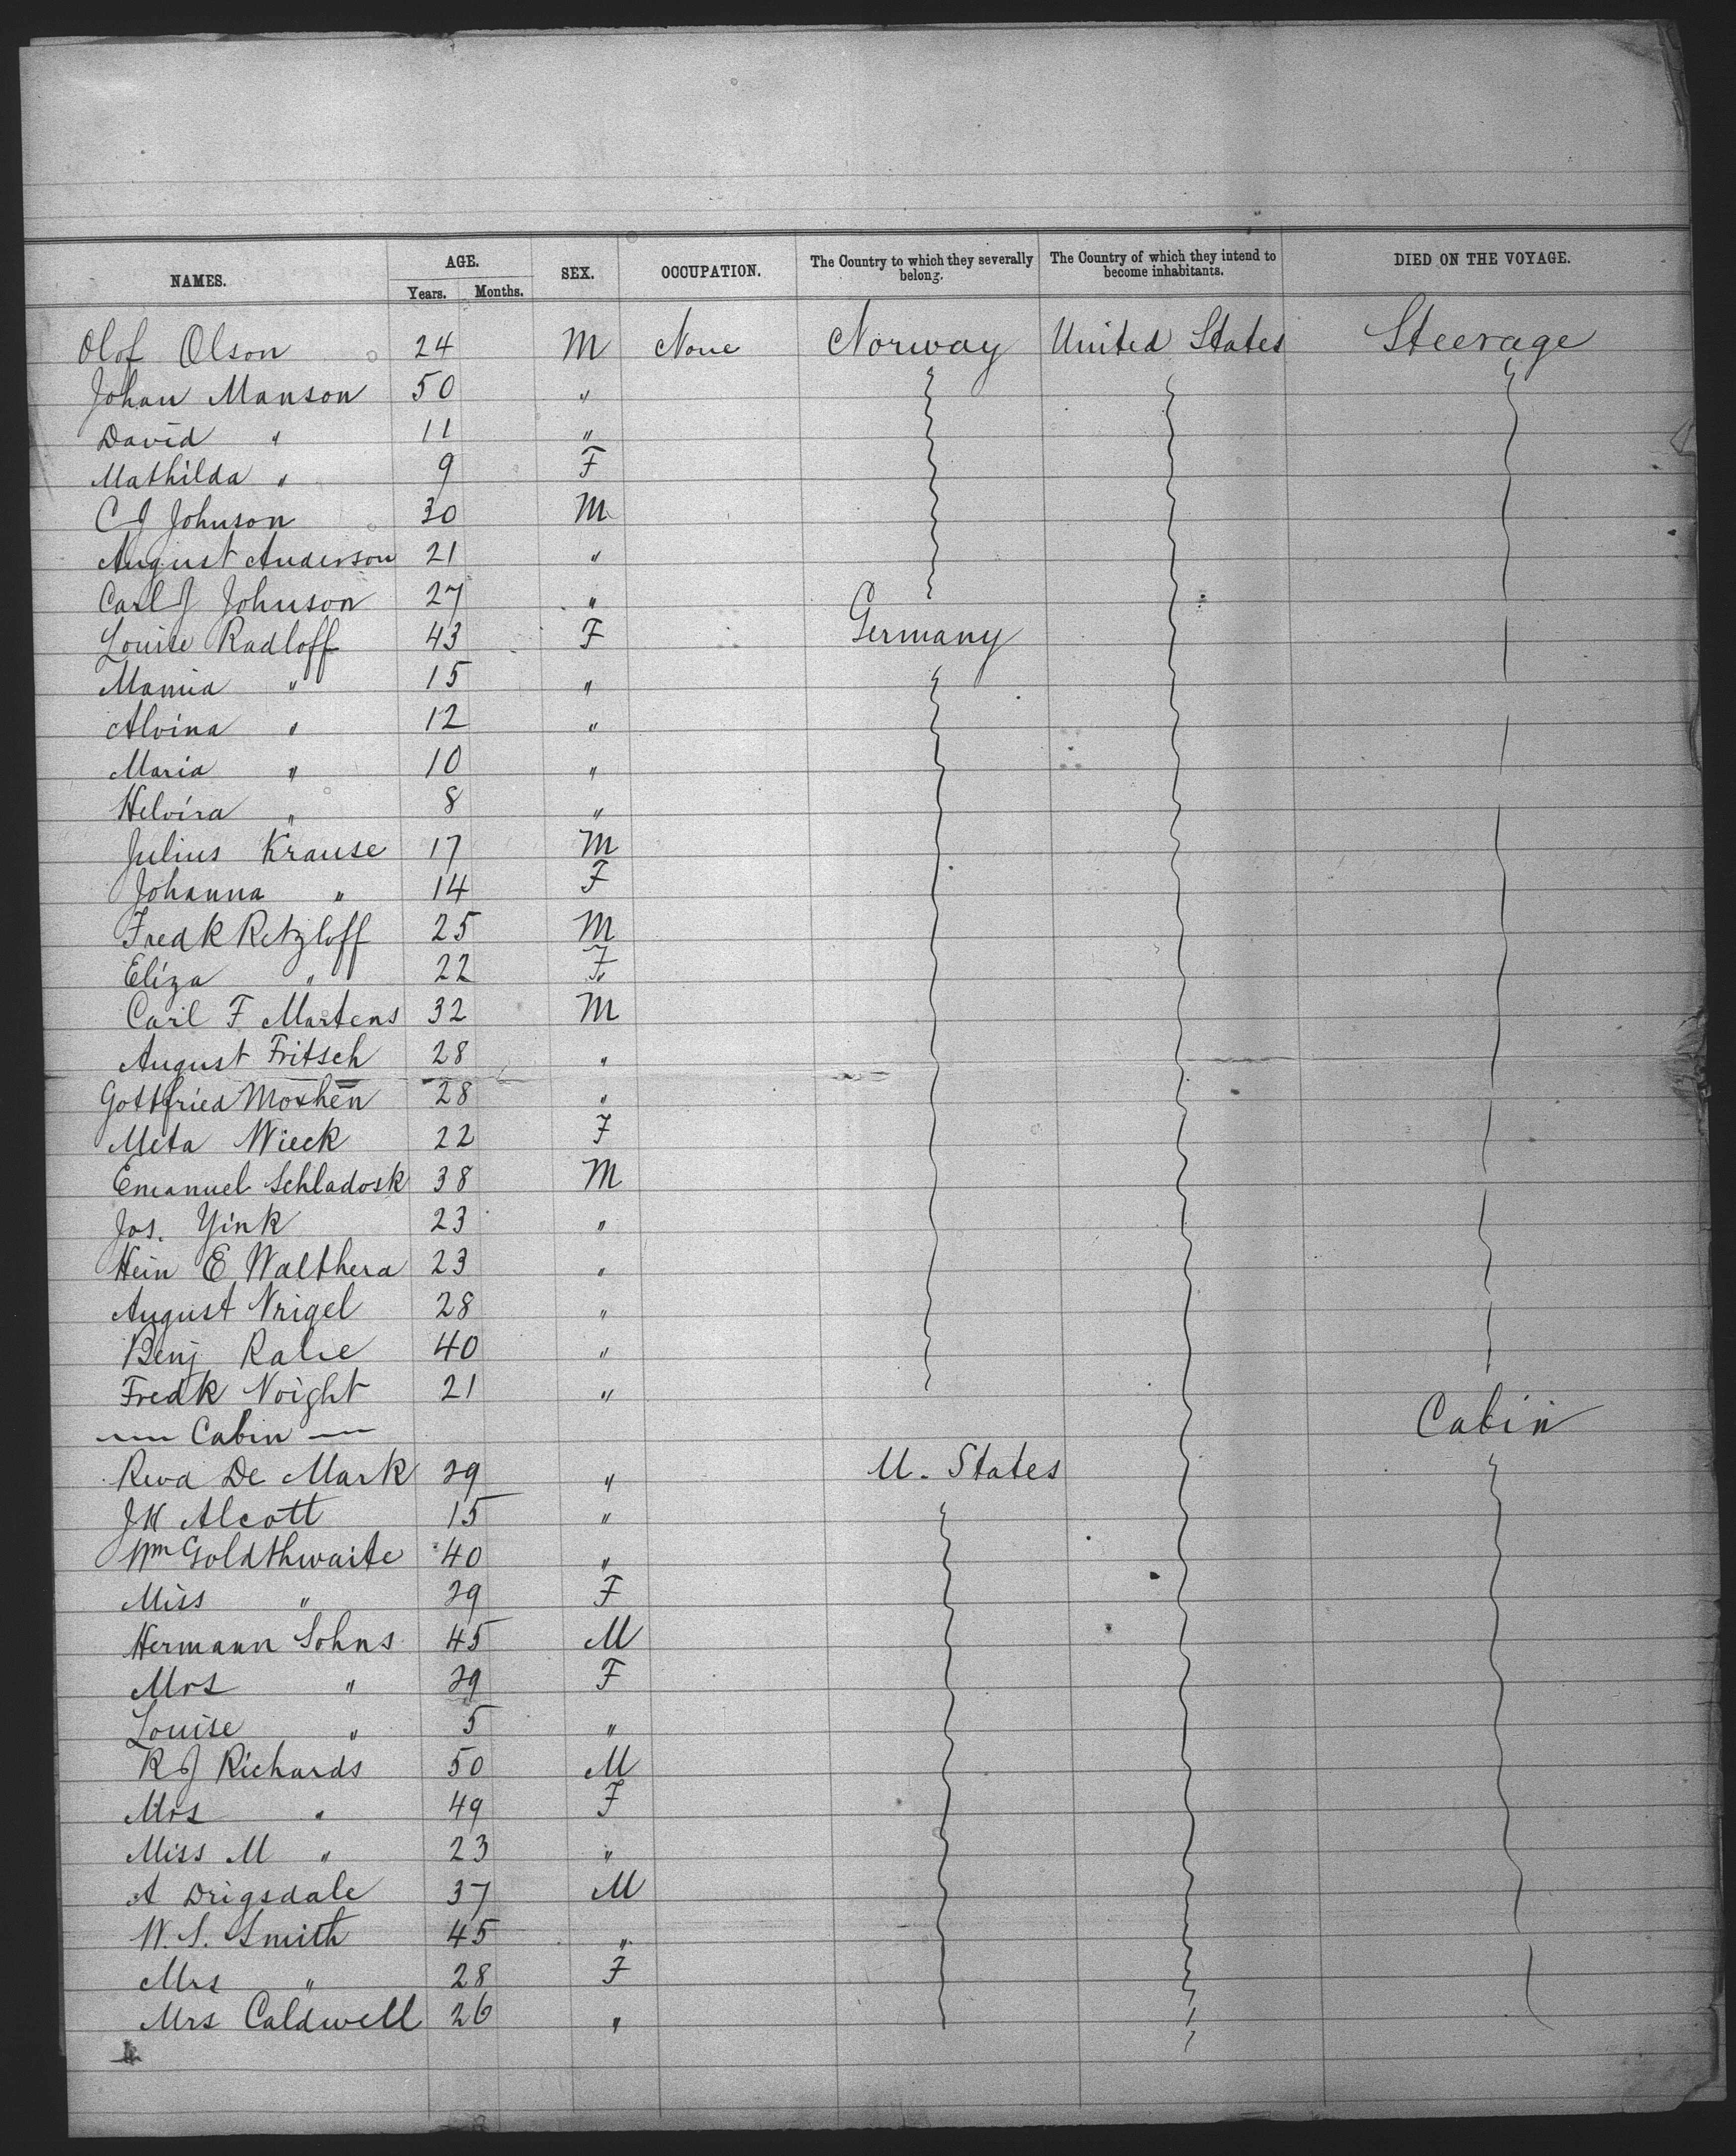 NAMES. AGE. Years. Months. SEX. OCCUPATION. The Country to which they severally belong. The Country of which they intend to become inhabitants. DIED ON THE VOYAGE.
Olof Olson 24 M None Norway United States Steerage
Johan Manson 50 "
David " 11 "
Mathilda " 9 F
C J Johnson 30 M
August Anderson 21 "
Carl J Johnson 27 "
Louise Radloff 43 F Germany
Mamia " 15 "
Alvina " 12 "
Maria " 10 "
Helvira " 8 "
Julius Krause 17 M
Johanna " 14 F
Fredk Retzloff 25 M
Eliza " 22 F
Carl F Martens 32 M
August Fritsch 28 "
Gottfried 28 "
Meta Wieck 22 F
Emanuel Schladosk 38 M
Jos. Yink 23 "
Hein E Walthera 23 "
August 28 "
Benj 40 "
Fredk Voight 21 "
Cabin Cabin
Reva De Mark 29 " U. States
J H Alcott 15 "
Wm Goldthwaite 40 "
Miss " 29 F
Hermann Sohns 45 M
Mrs " 29 F
Louise " 5 "
R J Richards 50 M
Mrs " 49 F
Miss M " 23 "
A Drigsdale 37 M
W. S. Smith 45 "
Mrs " 28 F
Mrs Caldwell 26 "